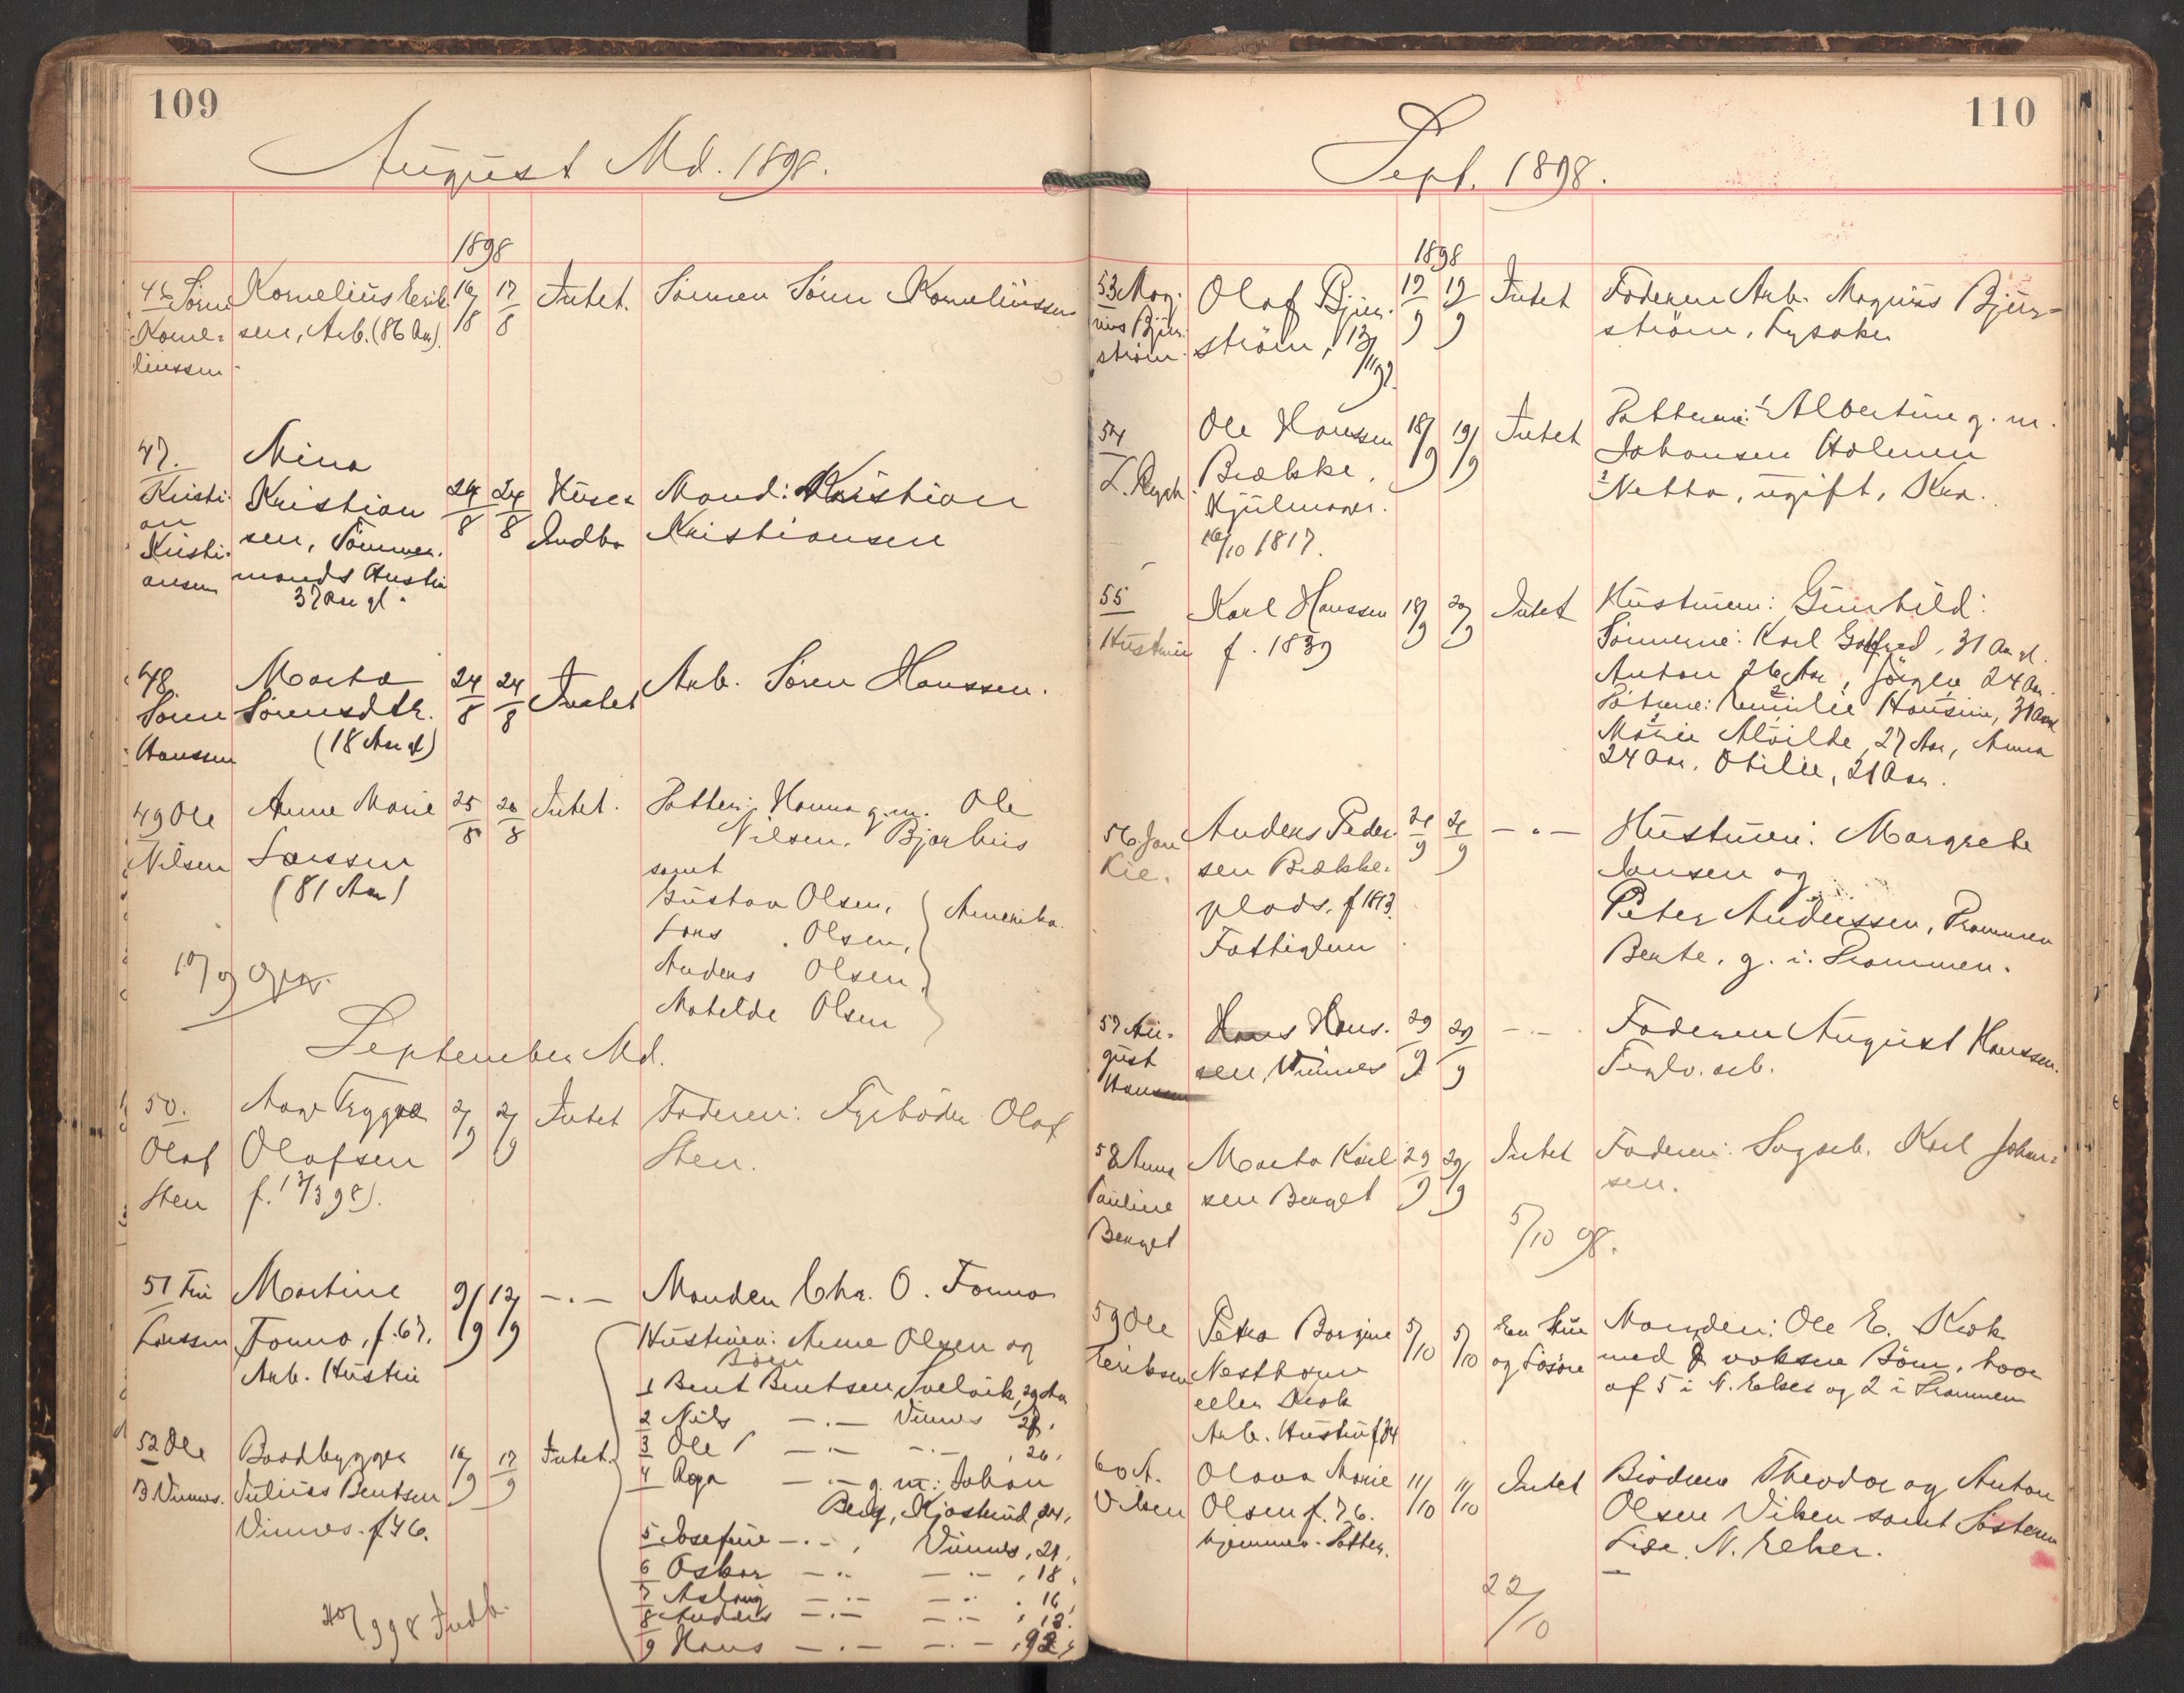 109
August Md. 1898.
1898
46 Søren
Korne-
liussen
Kornelius Erik-
sen, Arb. (86 Aar).
16/8
17/8
Intet.
Sønnen Søren Korneliussen
47.
Kristi-
an
Kristi-
ansen
Nina
Kristian
sen, Tømmer-
mands Hustru
37 Aar gl.
24/8
24/8
Huser
Indbo
Mand: Kristian
Kristiansen
48.
Søren
Hanssen
Marta
Sørensdtr.
(18 Aar gl)
24/8
24/8
Intet
Arb. Søren Hanssen.
49 Ole
Nilsen
Anne Marie
Larssen
(81 Aar)
25/8
26/8
Intet.
Datter: Hanna g.m. Ole
Nilsen, Bjørhus
samt
Gustav Olsen,
Lars Olsen,
Anders Olsen,
Matelde Olsen
Amerika.
10/9
September Md.
50.
Olaf
Sten
Aage Trygve
Olafsen
f. 17/3 98).
2/9
2/9
Intet
Faderen: Fyrbøder Olaf
Sten.
51
Larssen
Martine
Fonno, f. 67,
Arb. Hustru
9/9
12/9
-.-
Manden Chr. O. Fonno
52 Ole
B Vinnes.
Baadbygger
Julius Bentsen
Vinnes. f. 46.
16/9
17/9
Intet.
Hustruen: Anne Olsen og
Børn
1 Bent Bentsen, Svelvik, 29 Aar
2 Nils -.- Vinnes 28,
3 Ole -.- -.- , 26,
4 Aga -.- g. m: Johan
Berg, Kjøstrud, 24,
5 Josefine -.- , Vinnes, 21,
6 Oskar -.- -.- , 18,
7 Aslaug -.- -.- , 16,
8 Anders -.- -.- , 13.
9 Hans -.- -.- ,
20/9 98 Indb.
110
Sept. 1898.
1898
53 Mag-
nus Bjur-
strøm.
Olaf Bjur-
strøm, 12/11 97.
19/9
19/9
Intet
Faderen Arb. Magnus Bjur-
strøm, Lysaker
54
L. Rygh.
Ole Hanssen
Brække,
Hjulmager.
16/10 1817.
18/9
19/9
Intet
Døttrene: 1 Albertine g. m.
Johansen Holmen
2 Netta, ugift, Kra.
55
Hustru
Karl Hanssen
f. 1839
18/9
20/9
Intet
Hustruen: Gunhild:
Sønnerne: Karl Gotfred, 31 Aar gl.
Anton 26 Aar, Jørgen 24 Aar.
Døtrene: Emilie Hansine, 31 Aar
Marie Alvilde, 27 Aar, Anna
24 Aar. Otilie, 21 Aar.
56. Jan
Lie.
Anders Peder-
sen Brække-
plads, f 1813.
Fattiglem
21/9
21/9
-.-
Hustruen: Margrete
Jansen og
Peter Anderssen, Drammen
Berte, g. i. Drammen.
57 Au-
gust
Hanssen
Hans Hans-
sen, Vinnes
29/9
29/9
-.-
Faderen August Hanssen.
Teglv. arb.
58 Anna
Pauline
Berget
Marta Karl
sen Berget
29/9
29/9
Intet
Faderen: Sagarb. Karl Johan-
sen.
5/10 98.
59 Ole
Eriksen
Petra Borgine
Nesthagen
eller Krok
Arb. Hustru f 34
5/10
5/10
En Stue
og Løsøre
Manden: Ole E. Krok
med 8 voksne Børn, hvor
af 5 i N. Eker og 2 i Drammen
60 A.
Viken
Olava Marie
Olsen f. 76.
hjemmev. Datter.
11/10
11/10
Intet
Brødrene Theodor og Anton
Olsen Viken samt Søsteren
Lise, N. Eeker.
22/10